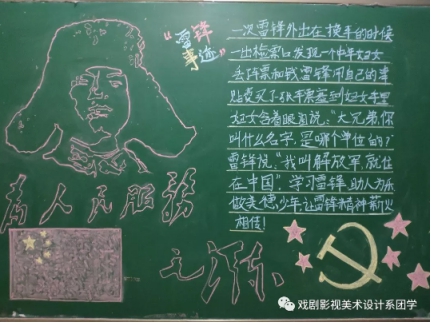 “雷锋
事迹”
一次雷锋外出在换车的时候
一出检票口发现一个中年妇女
丢掉票和钱雷锋用自己的津
贴费买了张车票塞到妇女手里
妇女含着眼泪说：“大兄弟你
叫什么名字，是哪个单位的？”
雷锋说：“我叫解放军，就住
在中国”。学习雷锋，助人为乐
做美德少年让雷锋精神薪火
相传！
为人民服务
毛泽东
戏剧影视美术设计系团学